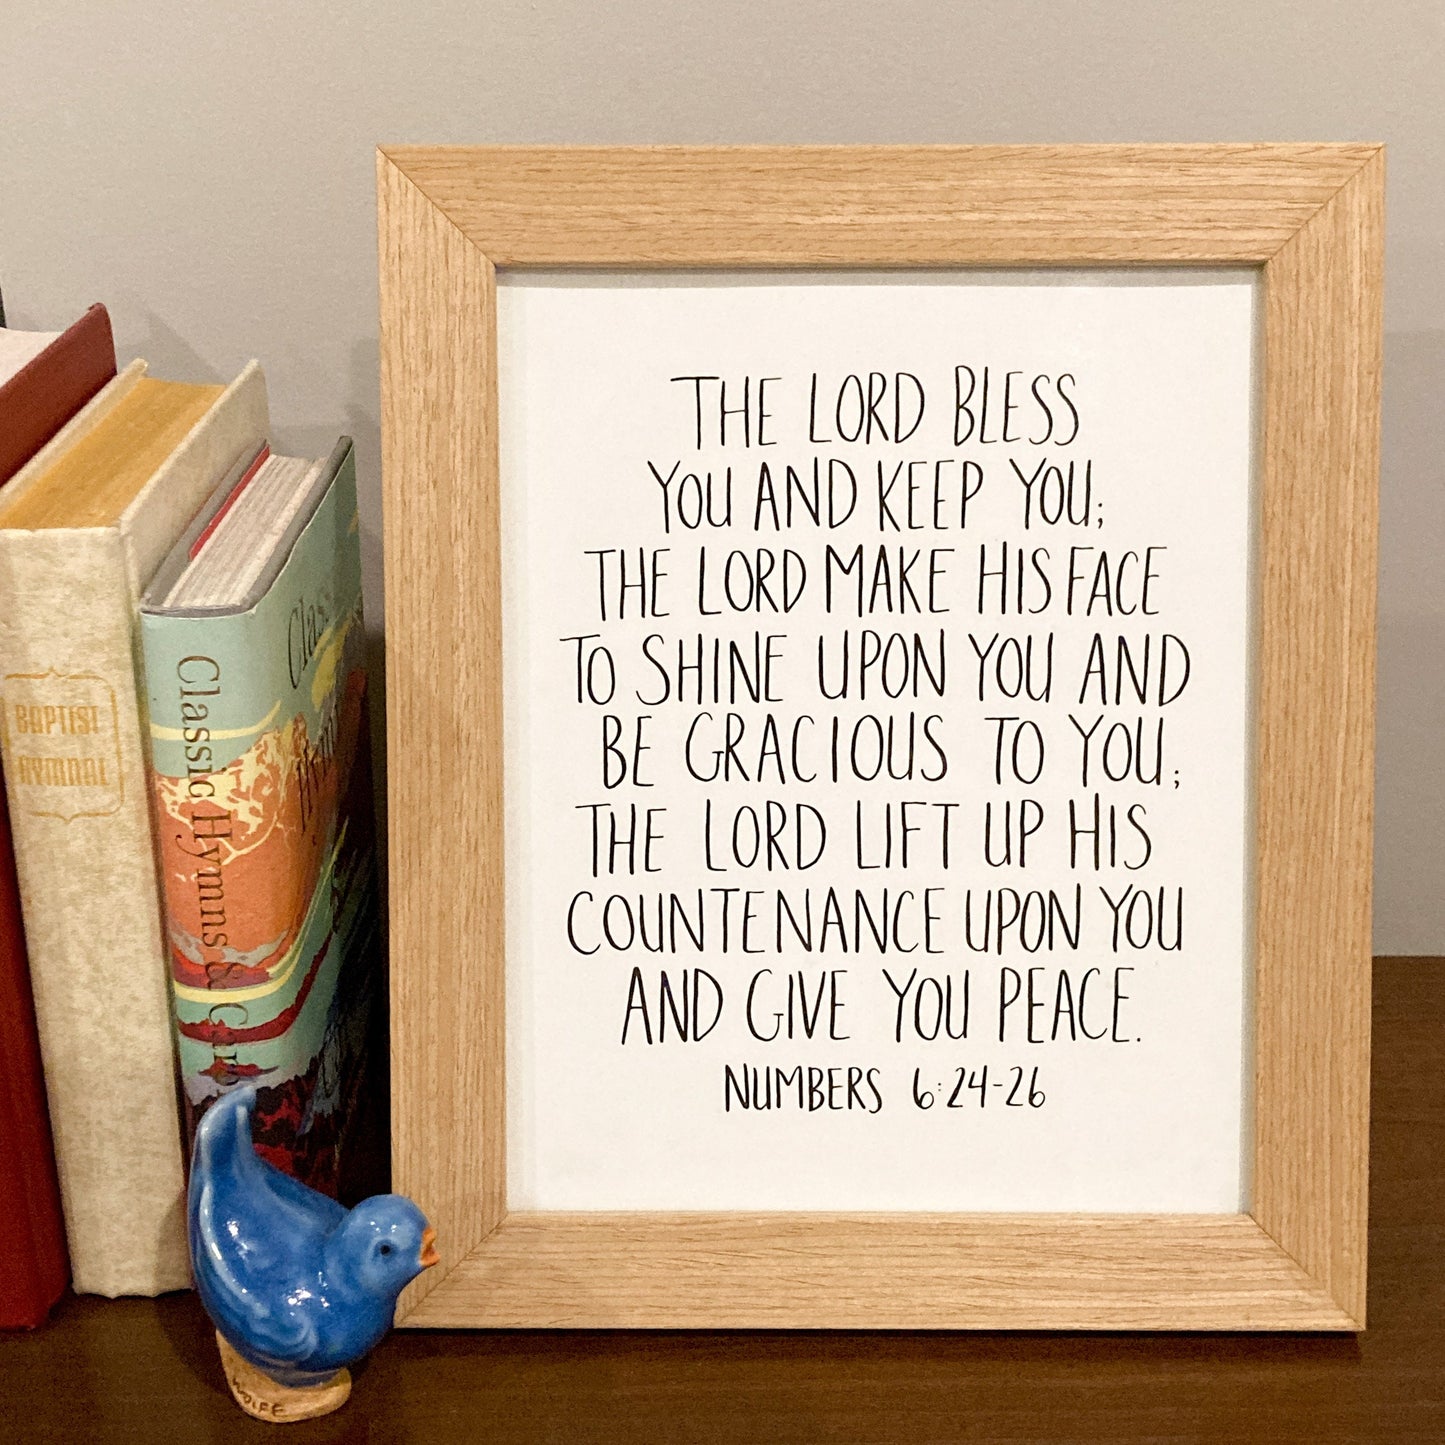 THE LORD BLESS
YOU AND KEEP YOU;
THE LORD MAKE HIS FACE
TO SHINE UPON YOU AND
BE GRACIOUS TO YOU;
THE LORD LIFT UP HIS
COUNTENANCE UPON YOU
AND GIVE YOU PEACE.
NUMBERS 6:24-26
BAPTIST
HYMNAL
Classic Hymns &
WOLFE